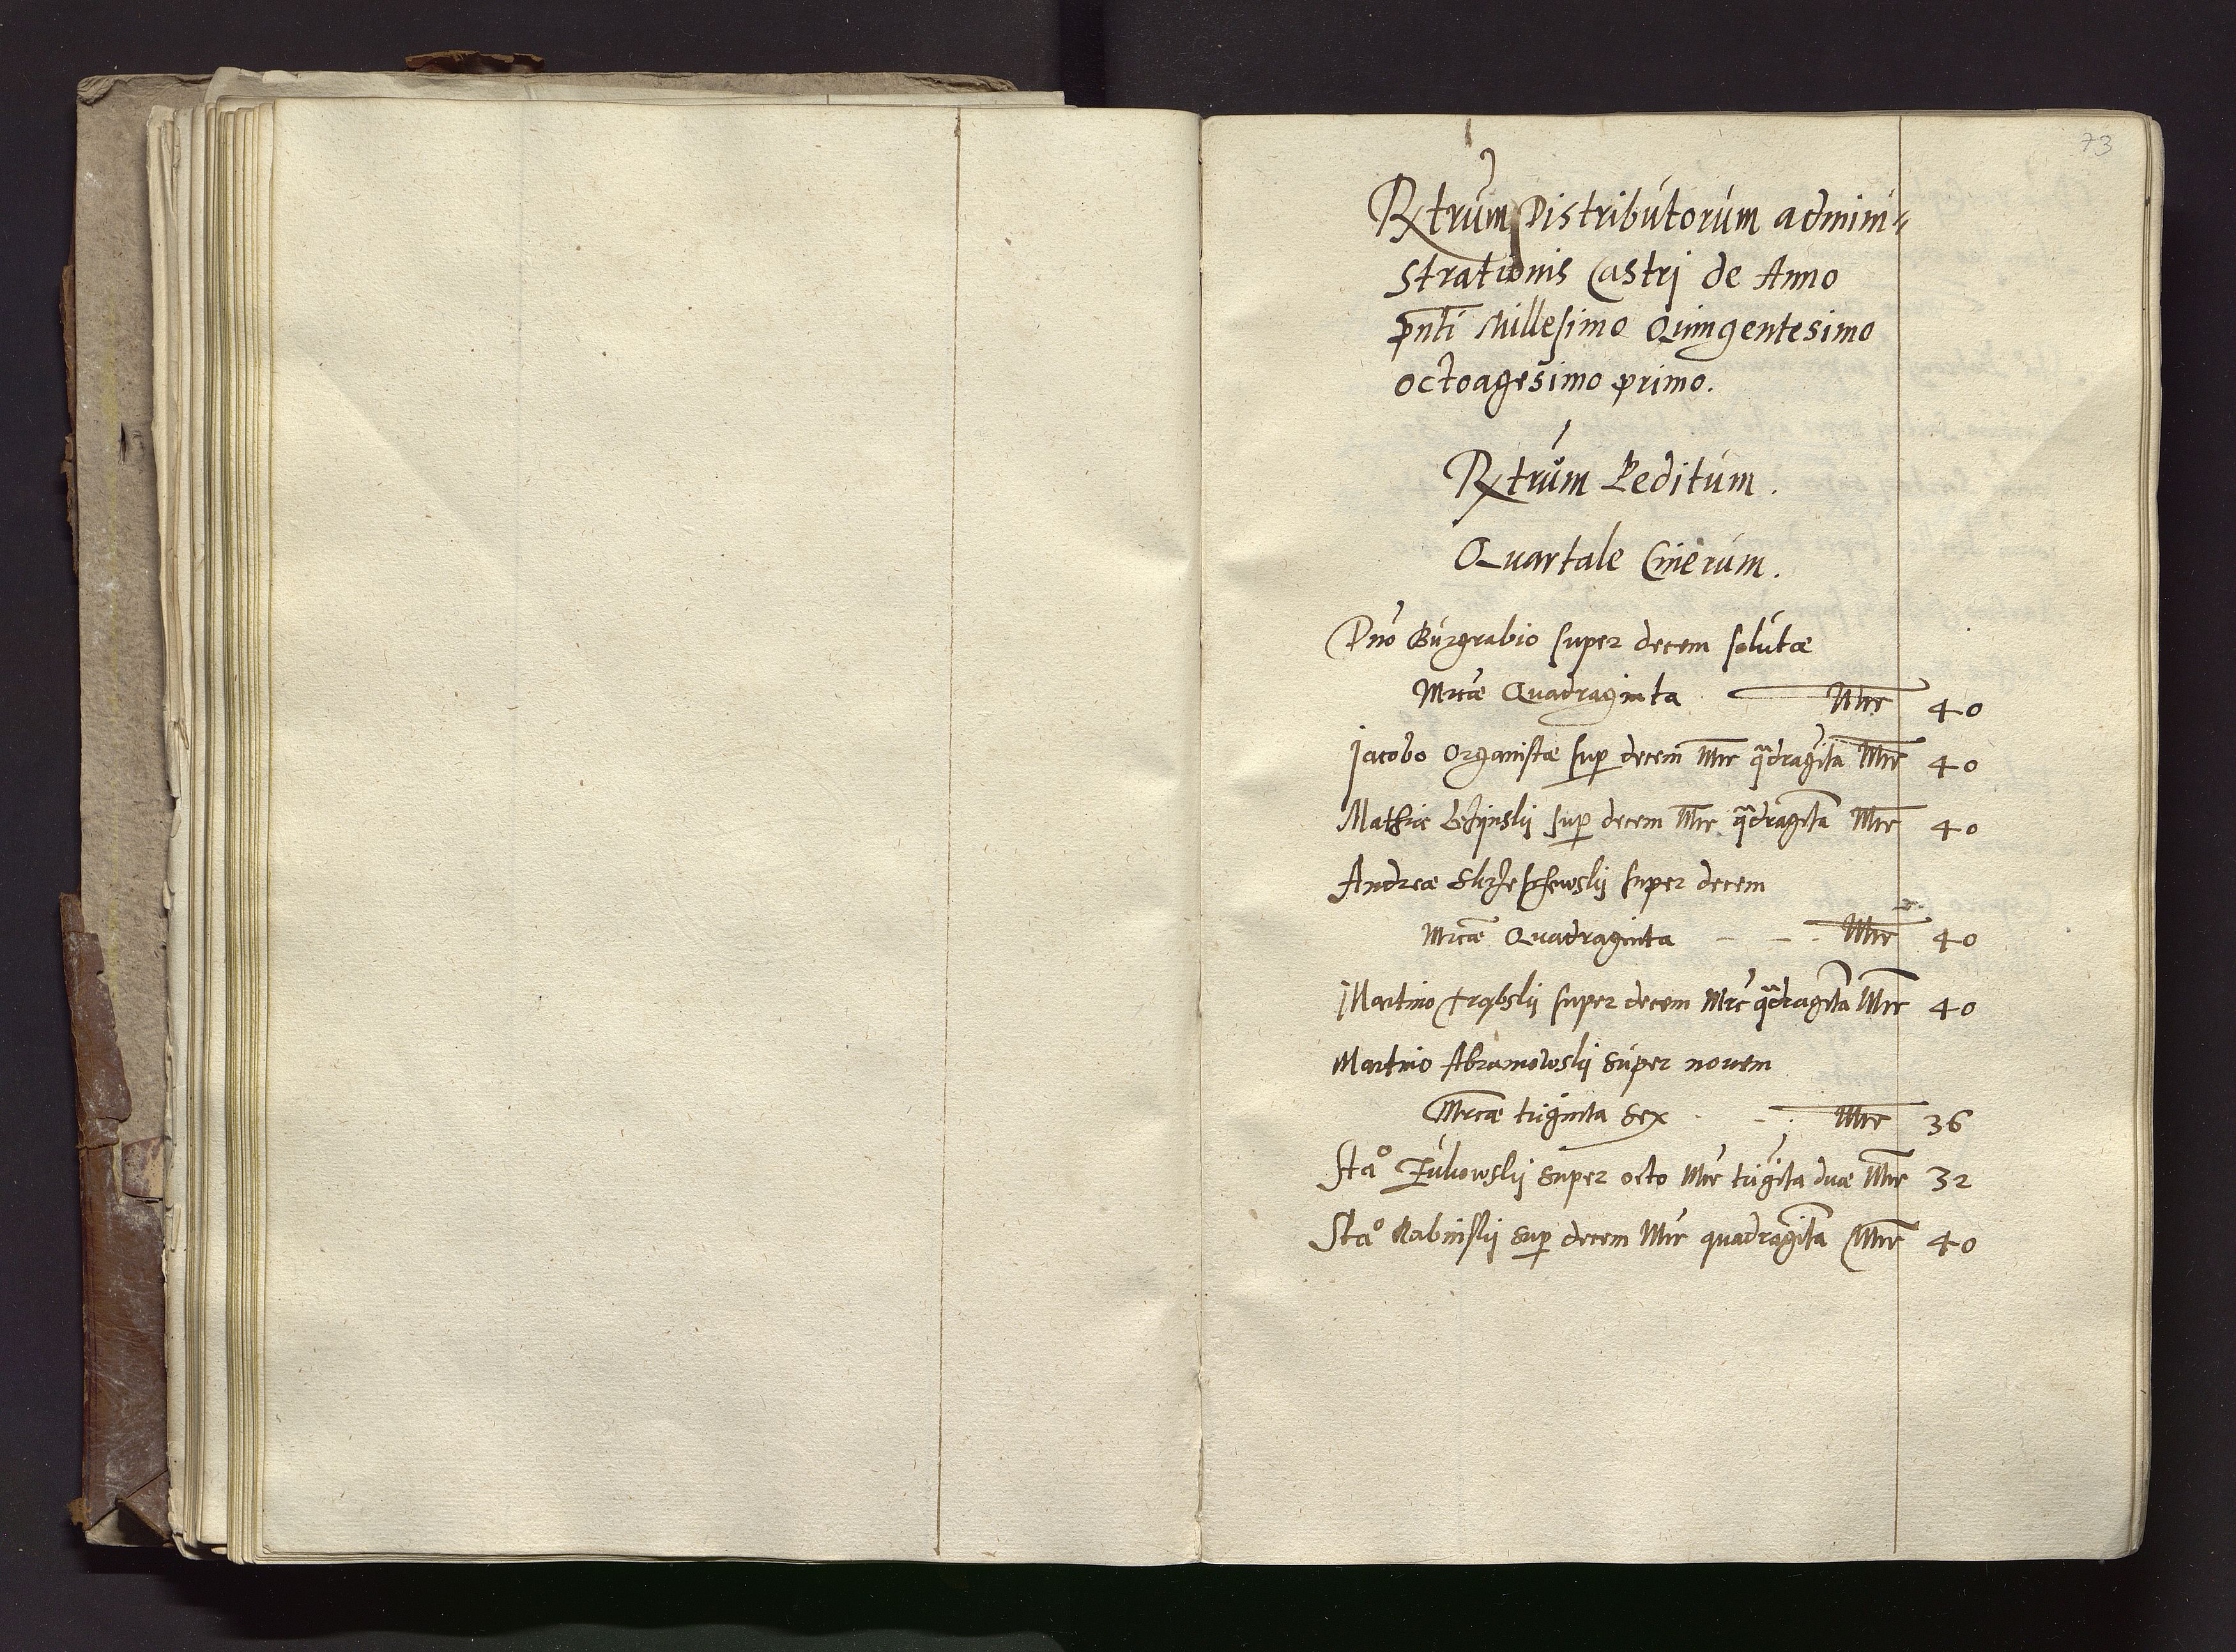 73
Rxtrum Distributorum admini-
strationis Castrj de Anno
pnti Millesimo Quingentesimo
octoagesimo primo.
Rxtrum Peditum.
Quartale Cinerum.
Dno Burgrabio super decem solutæ
Mrcæ Quadraginta Mrc 40
Jacobo Organistæ sup decem Mrc qdraginta Mrc 40
Mathiæ sup decem Mrc qdraginta Mrc 40
Andreæ super decem
Mrcæ Quadraginta - - Mrc 40
Martino super decem Mrc qdraginta Mrc 40
Martino Abramowskij super nouem
Mrcæ triginta sex - Mrc 36
Stao Zukowskij super octo Mrc triginta duæ Mrc 32
Stao Rabinskij sup decem Mrc quadraginta Mrc 40